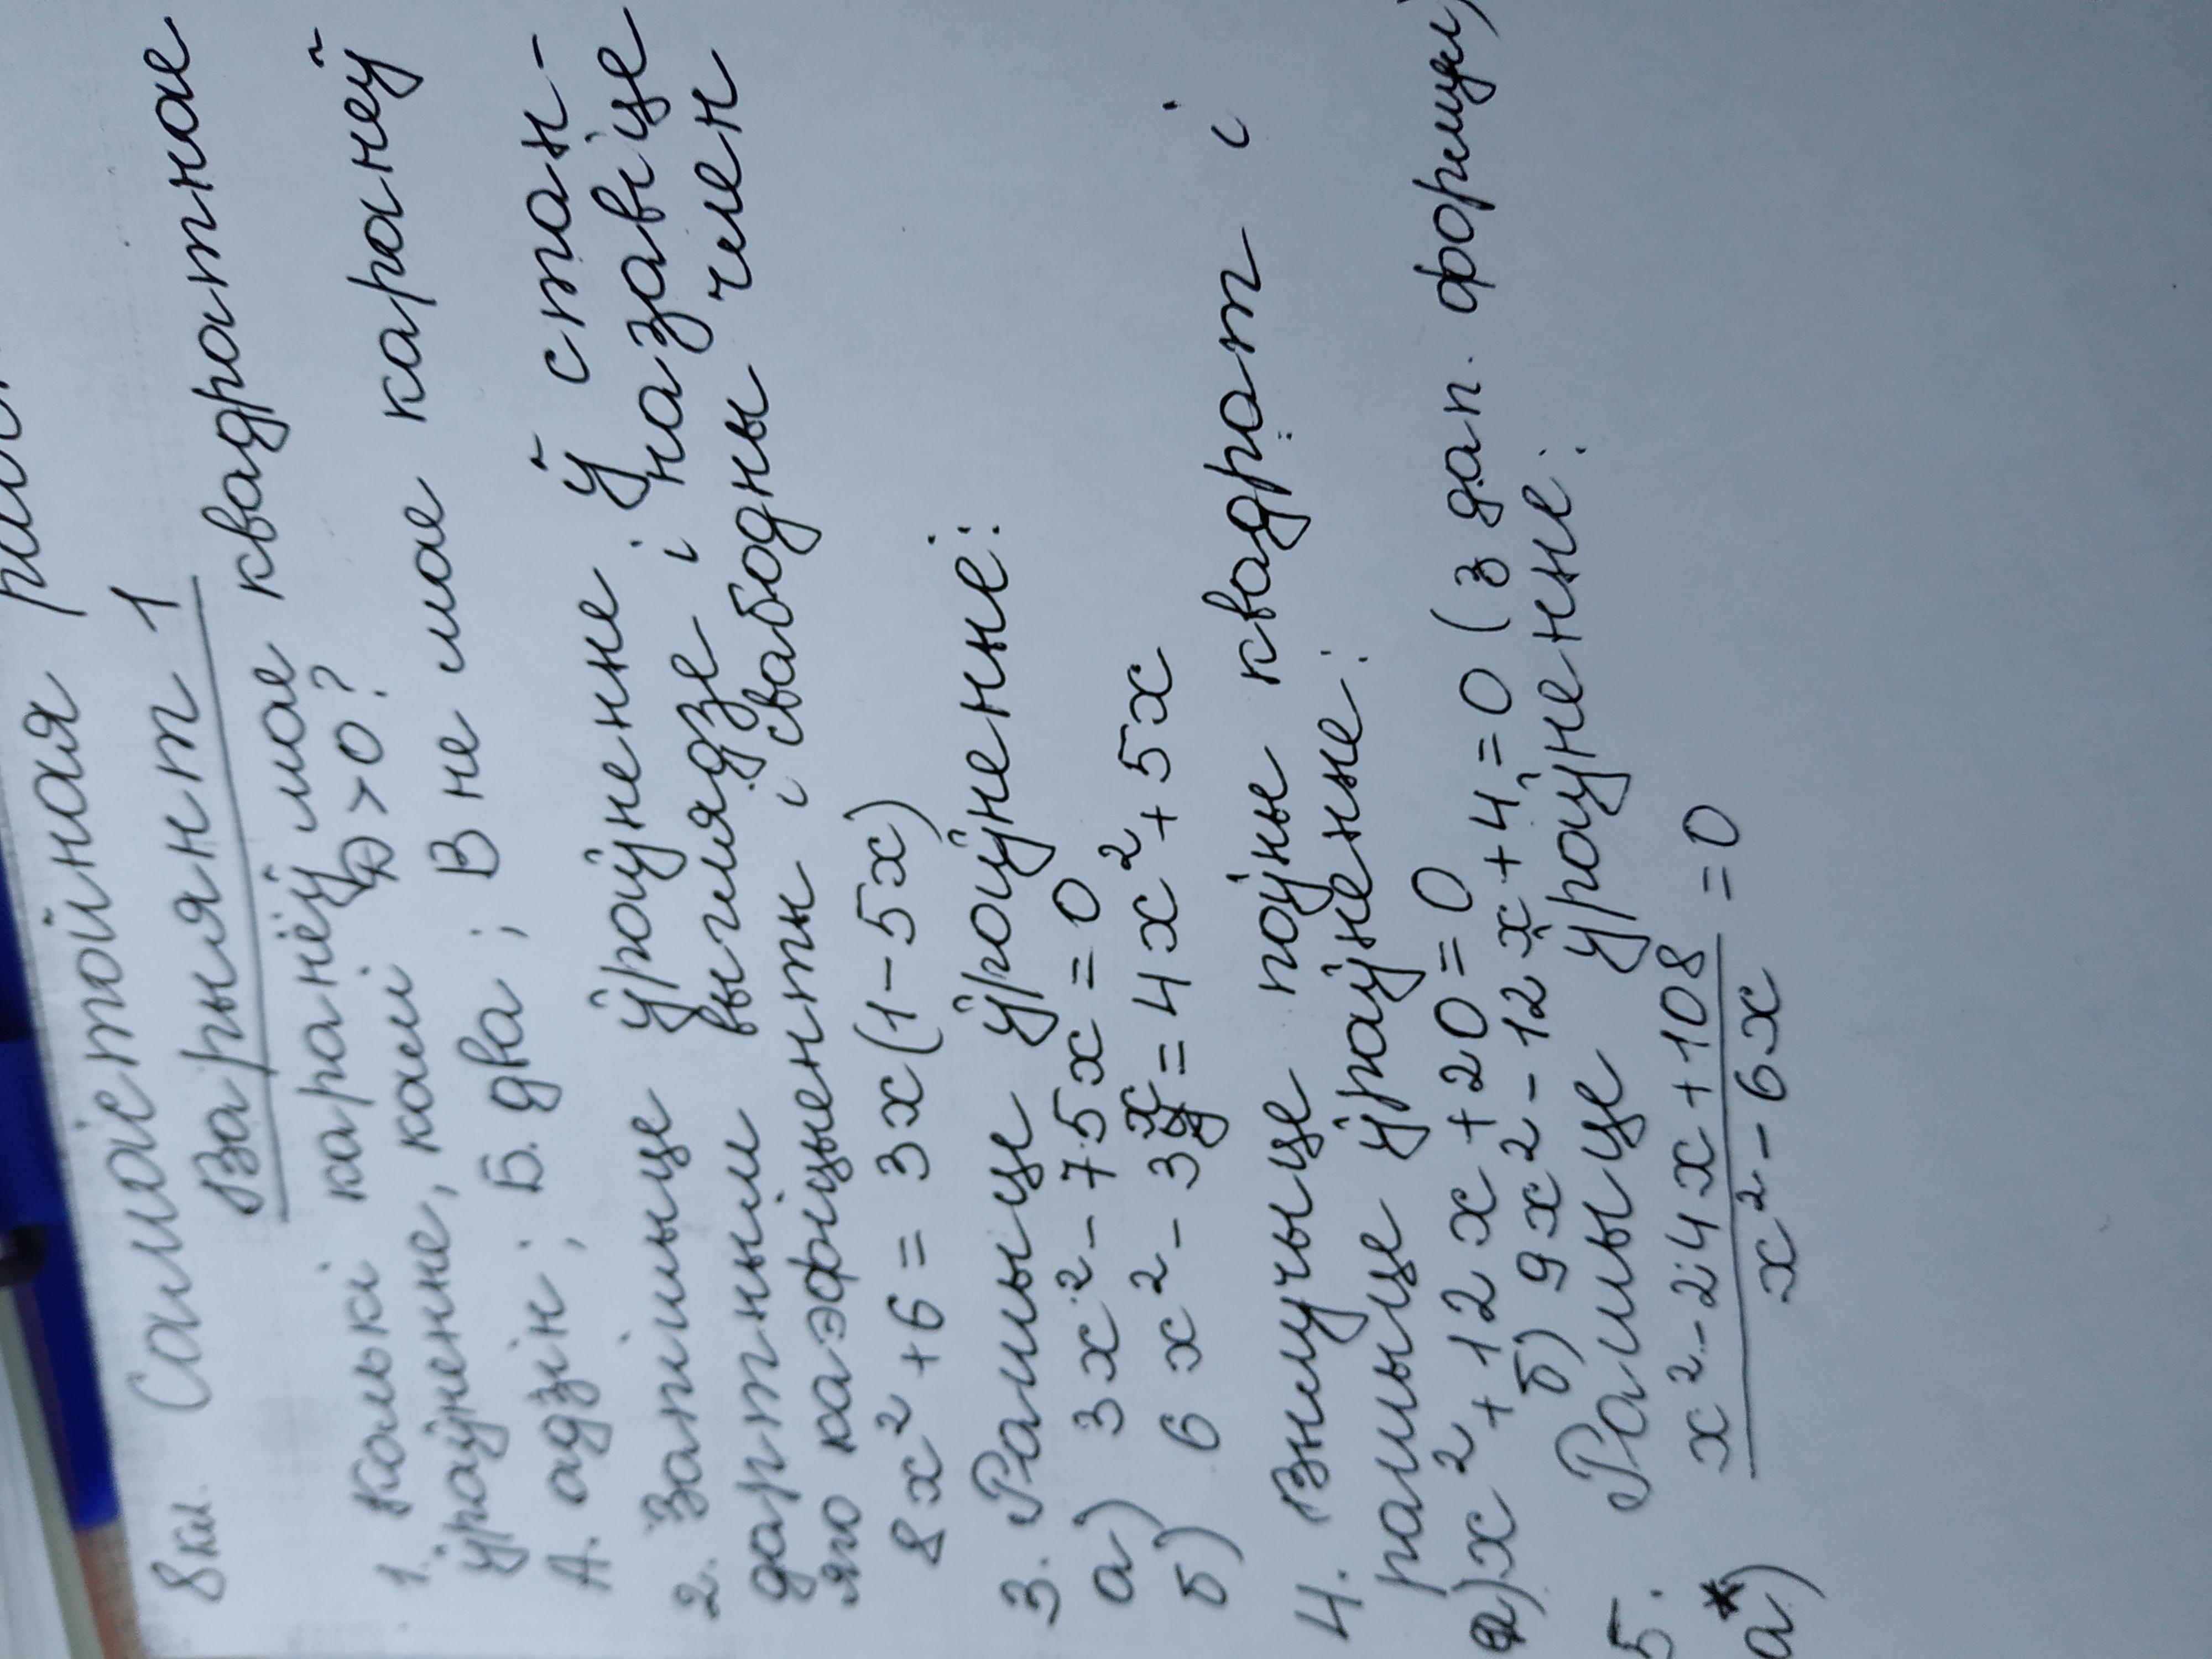 8 кл. Самастойная
Варыянт 1
1. Колькі каранёў мае квадратнае
ўраўненне, калі D > 0?
А. адзін; Б. два; В не мае каранеў
2. Запішыце ўраўненне ў стан-
дартным выглядзе і назавіце
яго каэфіцыенты і свабодны член
8x² + 6 = 3x(1 - 5x)
3. Рашыце ўраўненне:
а) 3x² - 75x = 0
б) 6x² - 3x = 4x² + 5x
4. Вылучыце поўны квадрат і
рашыце ўраўненне:
а) x² + 12x + 20 = 0
б) 9x² - 12x + 4 = 0 (з дап. формулы)
5. Рашыце ўраўненне:
а)* x² - 24x + 108 = 0
x² - 6x